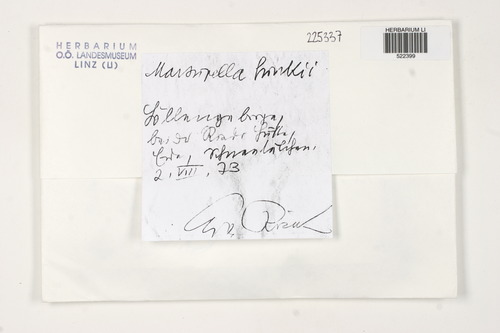 225337
HERBARIUM LI
522399
HERBARIUM
O.Ö. LANDESMUSEUM
LINZ (LI)
Marsupella funckii
Höllengebirge,
bei der Rieder Hütte,
Erde, Schneetälchen.
2. VIII. 73
v. Ricek